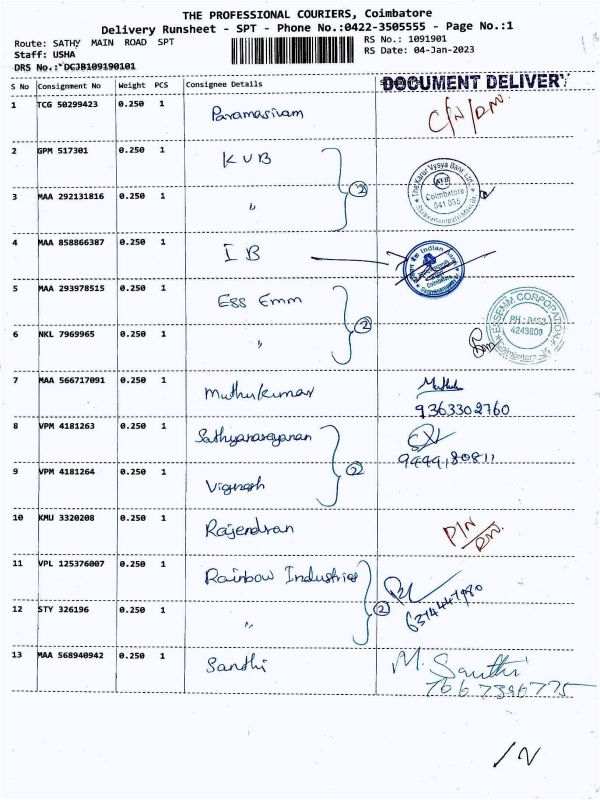 THE PROFESSIONAL COURIERS, Coimbatore
Delivery Runsheet - SPT - Phone No.:0422-3505555 - Page No.:1
Route: SATHY MAIN ROAD SPT
RS No.: 1091901
Staff: USHA
RS Date: 04-Jan-2023
DRS No.: DCJB109190101
S No Consignment No Weight PCS Consignee Details
DOCUMENT DELIVERY
1 TCG 50299423 0.250 1 Paramasivam
2 GPM 517301 0.250 1 KVB
The Karur Vysya Bank Ltd.
KVB
Coimbatore
641 035
3 MAA 292131816 0.250 1 "
2
4 MAA 858866387 0.250 1 IB
5 MAA 293978515 0.250 1 Ess Emm
ESSEMM CORPORATION
PH : 0422
Coimbatore
6 NKL 7969965 0.250 1 "
2
7 MAA 566717091 0.250 1 Muthukumar
9363302760
8 VPM 4181263 0.250 1 Sathyanarayanan
9 VPM 4181264 0.250 1 Vignesh
2
10 KMU 3320208 0.250 1 Rajendran
11 VPL 125376007 0.250 1 Rainbow Industries
12 STY 326196 0.250 1 "
2
13 MAA 568940942 0.250 1 Santhi
M. Santhi